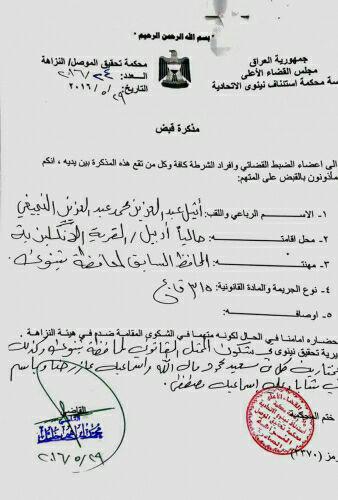 " بسم الله الرحمن الرحيم "
جمهورية العراق
مجلس القضاء الأعلى
سة محكمة استئناف نينوى الاتحادية
محكمة تحقيق الموصل/ نزاهة
العدد: ٢٠١٦/٢٤
التاريخ: ٢٠١٦/٥/٢٩
مذكرة قبض
الى اعضاء الضبط القضائي وافراد الشرطة كافة وكل من تقع هذه المذكرة بين يديه ، انكم
مأذونون بالقبض على المتهم:
١- الاسم الرباعي واللقب: أثيل عبد العزيز محمد عبد العزيز النجيفي
٢- محل اقامته: حالياً أربيل / القرية الانكليزية
٣- مهنته: المحافظ السابق لمحافظة نينوى
٤- نوع الجريمة والمادة القانونية: ٣١٥ ق.ع
٥- اوصافه:
حضاره امامنا في الحال لكونه متهما في الشكوى المقامة ضدم في هيئة النزاهة
يرية تحقيق نينوى في شكوى الممثل القانوني لمحافظة نينوى وكذلك
كل من سعيد محمود واسماعيل
علي اسماعيل مصطفى
ختم المحكمة
القاضي
٢٠١٦/٥/٢٩
مز (٣٣٧٠)